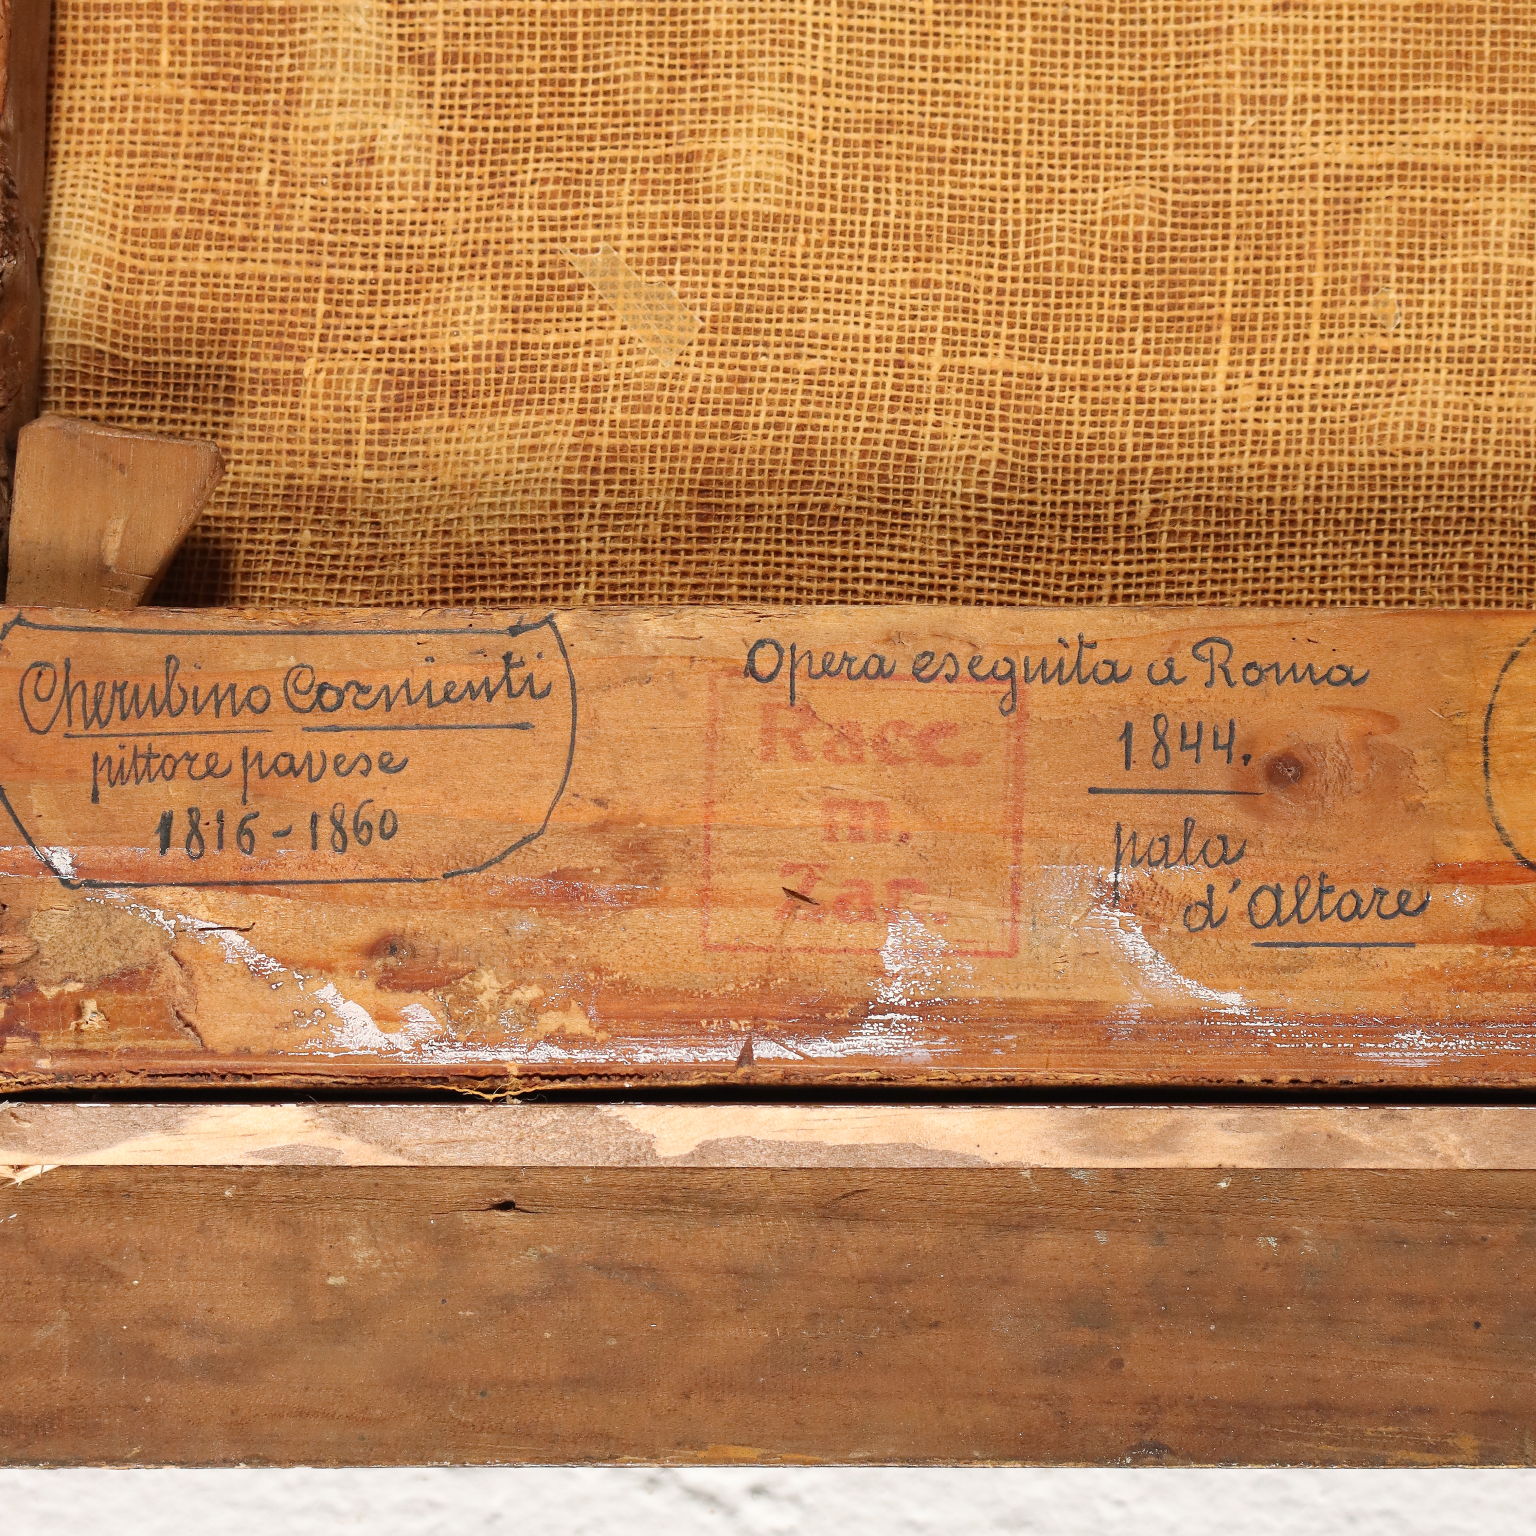 Cherubino Cornienti
pittore pavese
1816-1860
Opera eseguita a Roma
1844.
pala
d'Altare
Racc.
m.
Zar.